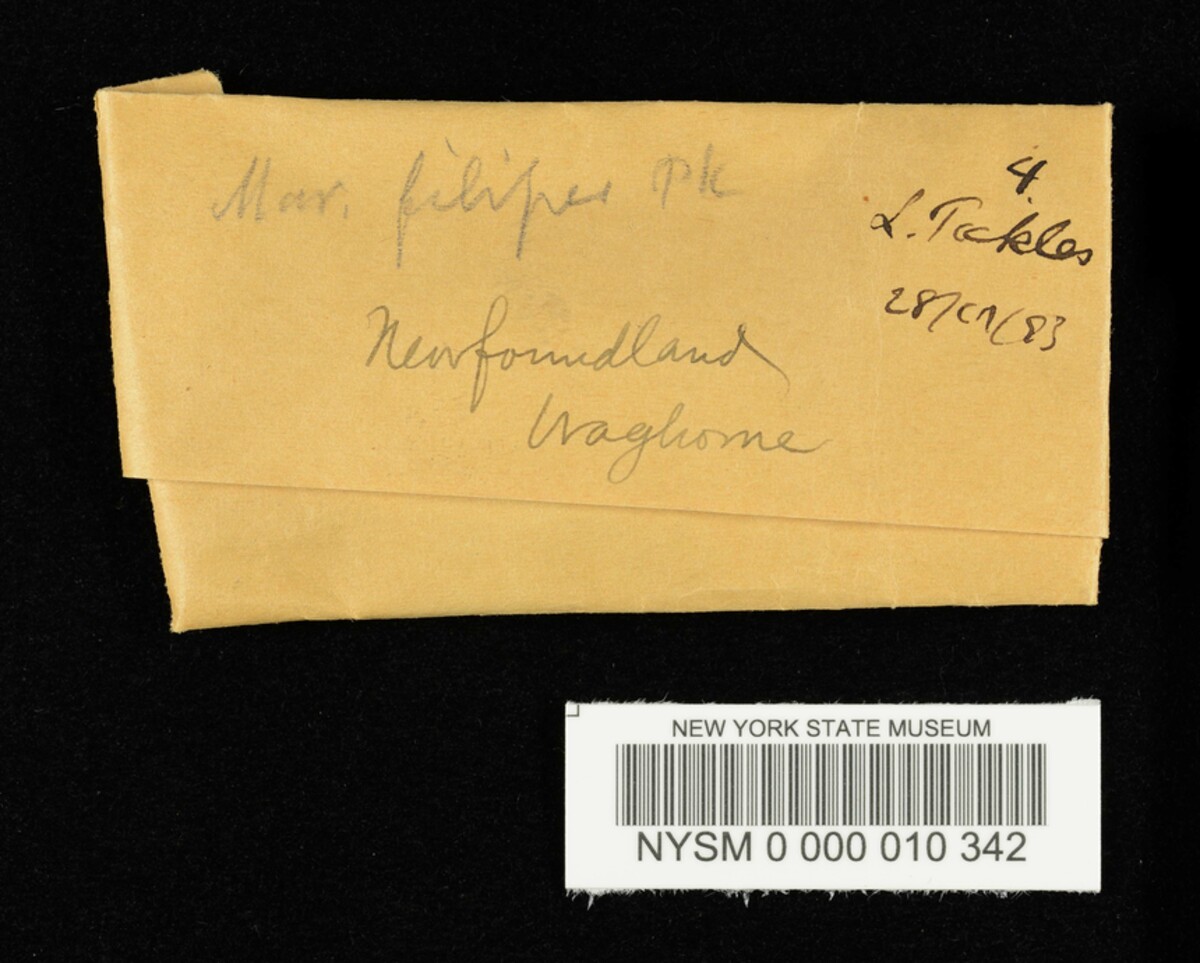 Mar. filipes Pk
4.
L. Tackles
28/VI/83
Newfoundland
Waghorne
NEW YORK STATE MUSEUM
NYSM 0 000 010 342